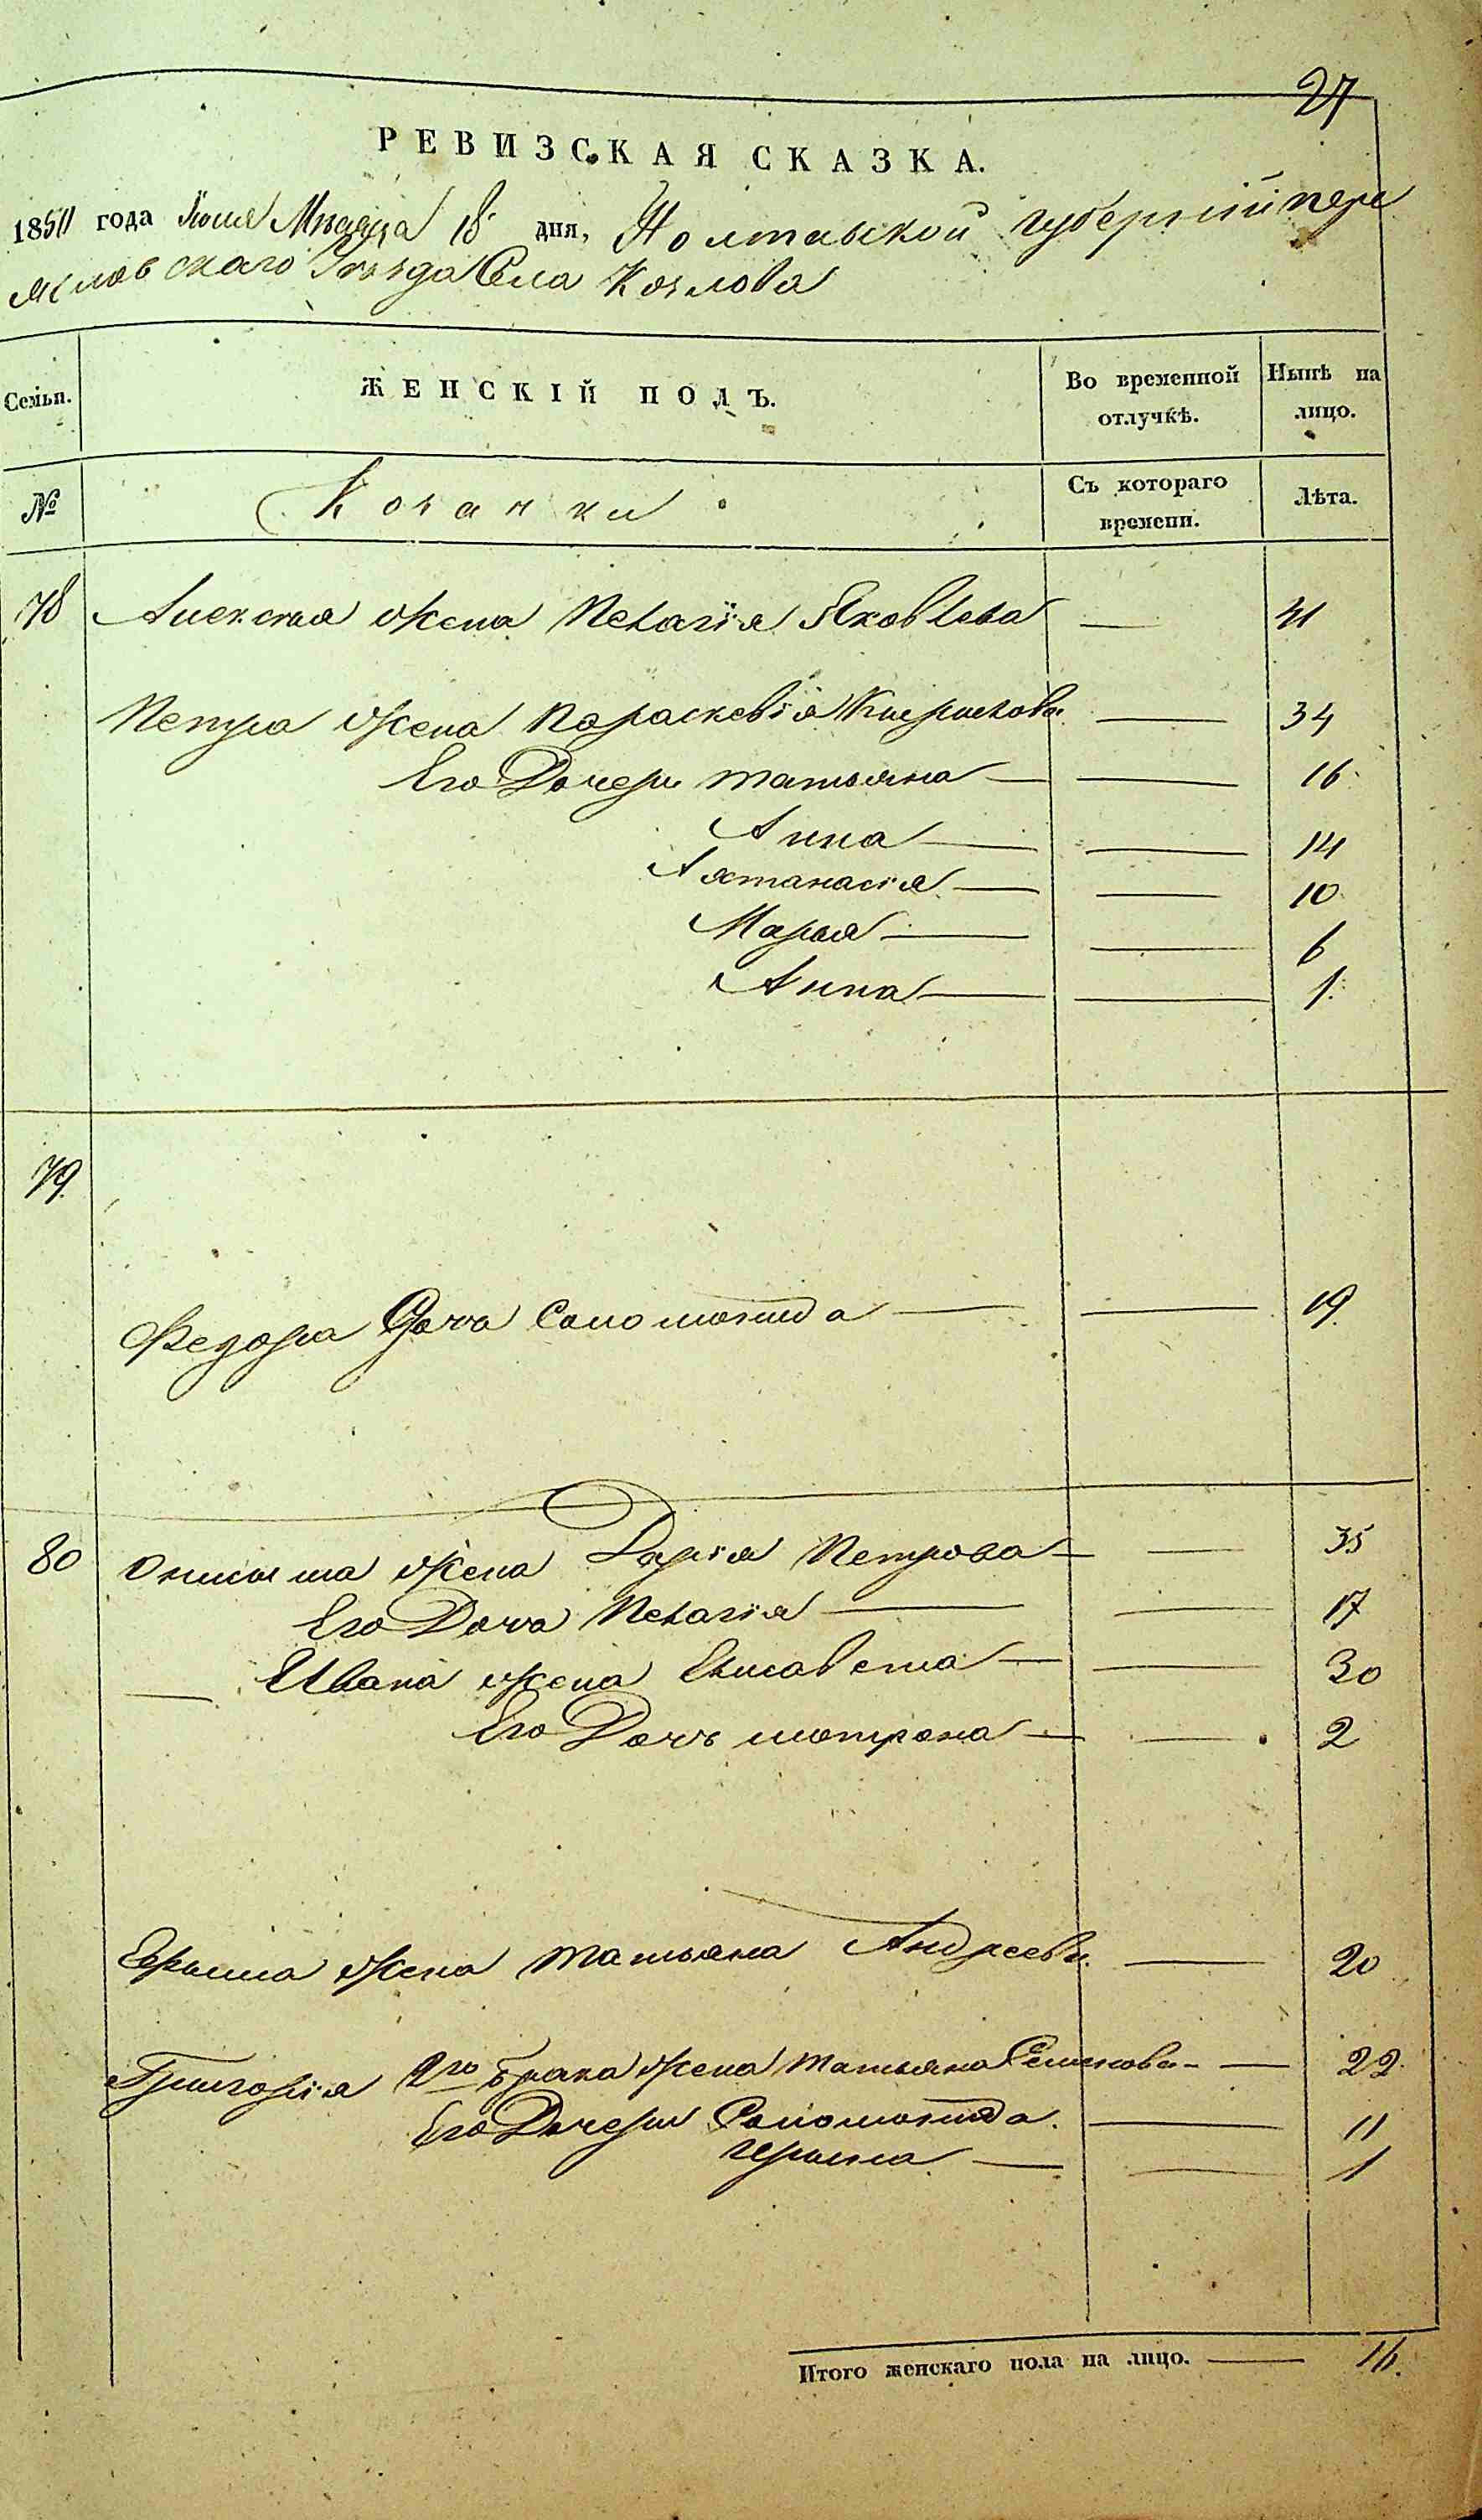 27
РЕВИЗСКАЯ СКАЗКА.
1850 года Июня Мъсяца 18 дня, Полтавской губерніи пере
яславскаго Уезда Села Козлова
Семьи. ЖЕНСКІЙ ПОЛЪ. Во временной отлучкѣ. Нынѣ на лицо.
№ Козачки Съ котораго времени. Лѣта.
78 Алексея жена Пелагія Яковлева — 41
Петра жена Параскевія Кирилова — 34
Его Дочери татьяна — — 16
Анна — — 14
Анастасія — — 10
Марья — — 6
Анна — — 1
79
Федора Дочь Соломонида — — 19
80 Онисима жена Дарія Петрова — — 35
Его Дочь Пелагія — — 17
— Ивана жена Елисавета — — 30
Его Дочь мотрона — — 2
Ефима жена татьяна Андреева — 20
Григорія 2го брака жена татьяна Семенова — — 22
Его Дочери Соломонида — 11
— — 1
Итого женскаго пола на лицо. — 16.